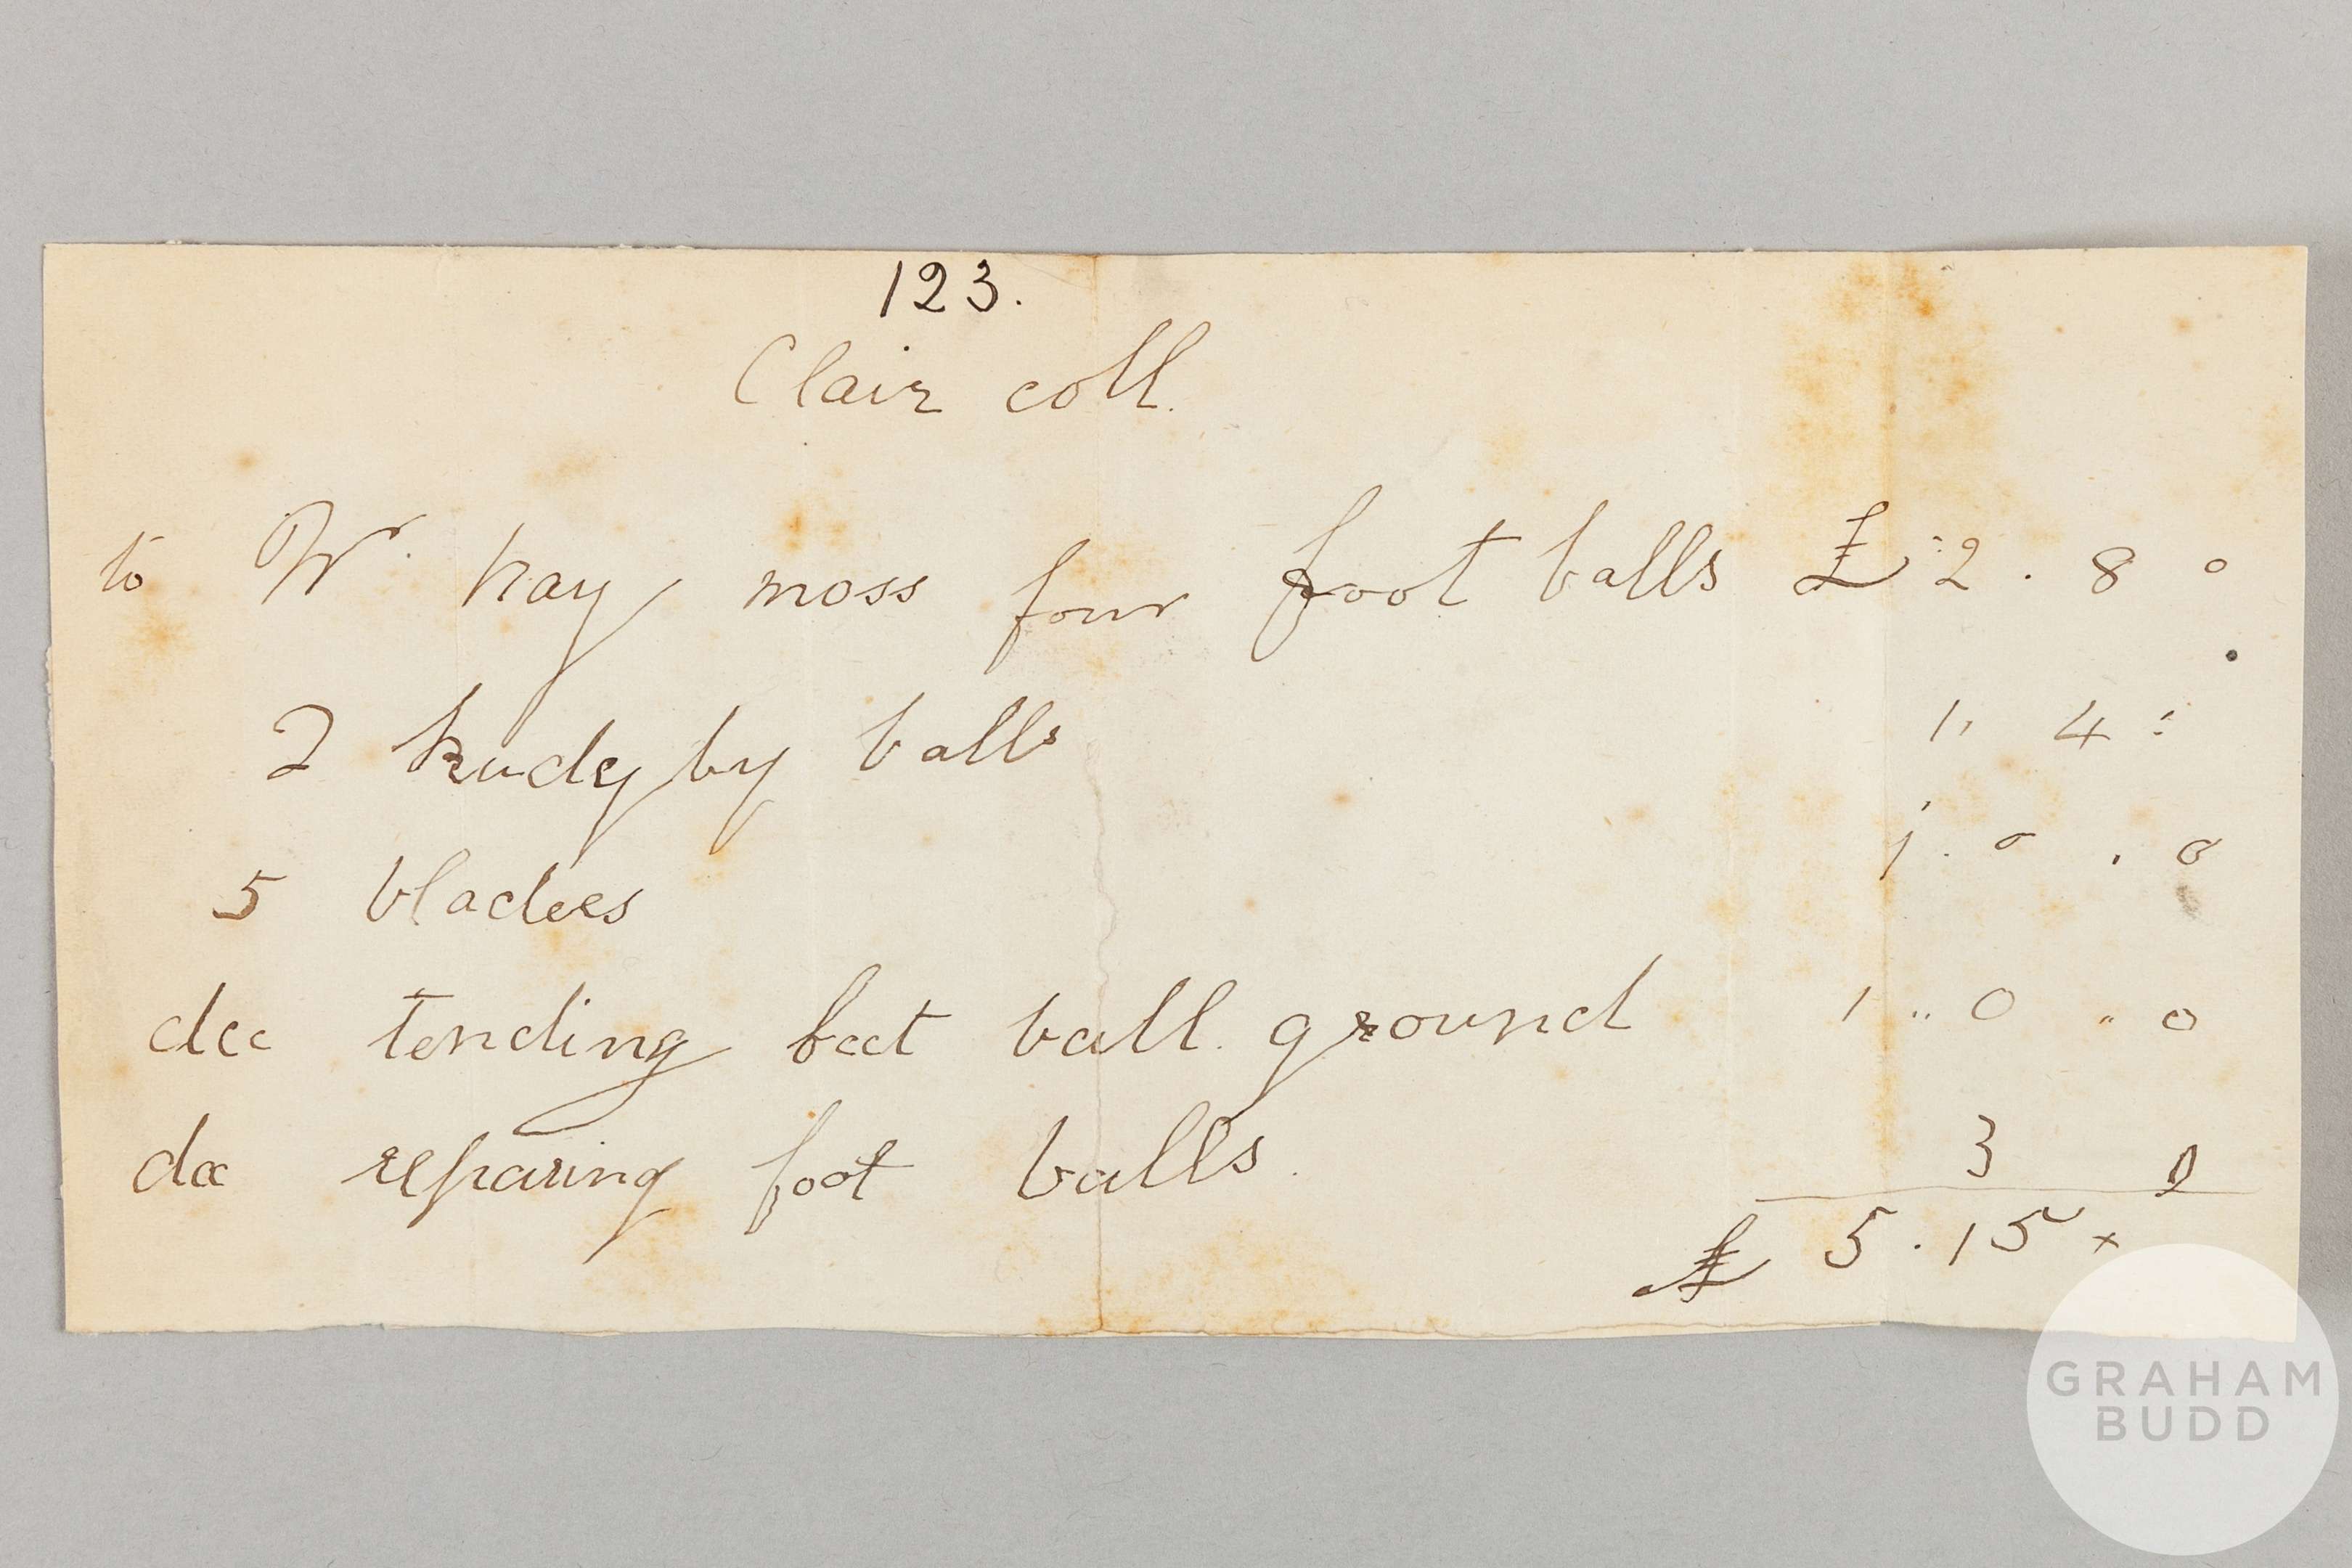 123.
Clair coll.
to Wr. hay moss four foot balls £ 2 . 8 0
2 Rudgby balls 1 " 4 :
5 bladees 1 . 0 . 0
do tending foot ball ground 1 " 0 " 0
do reparing foot balls. 3 0
£ 5 . 15 x
GRAHAM
BUDD